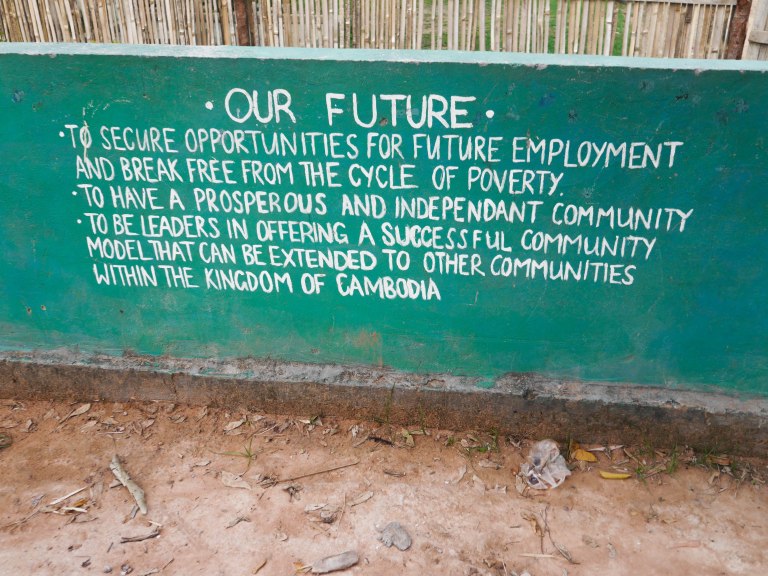 • OUR FUTURE •
• TO SECURE OPPORTUNITIES FOR FUTURE EMPLOYMENT
AND BREAK FREE FROM THE CYCLE OF POVERTY.
• TO HAVE A PROSPEROUS AND INDEPENDANT COMMUNITY
• TO BE LEADERS IN OFFERING A SUCCESSFUL COMMUNITY
MODEL THAT CAN BE EXTENDED TO OTHER COMMUNITIES
WITHIN THE KINGDOM OF CAMBODIA